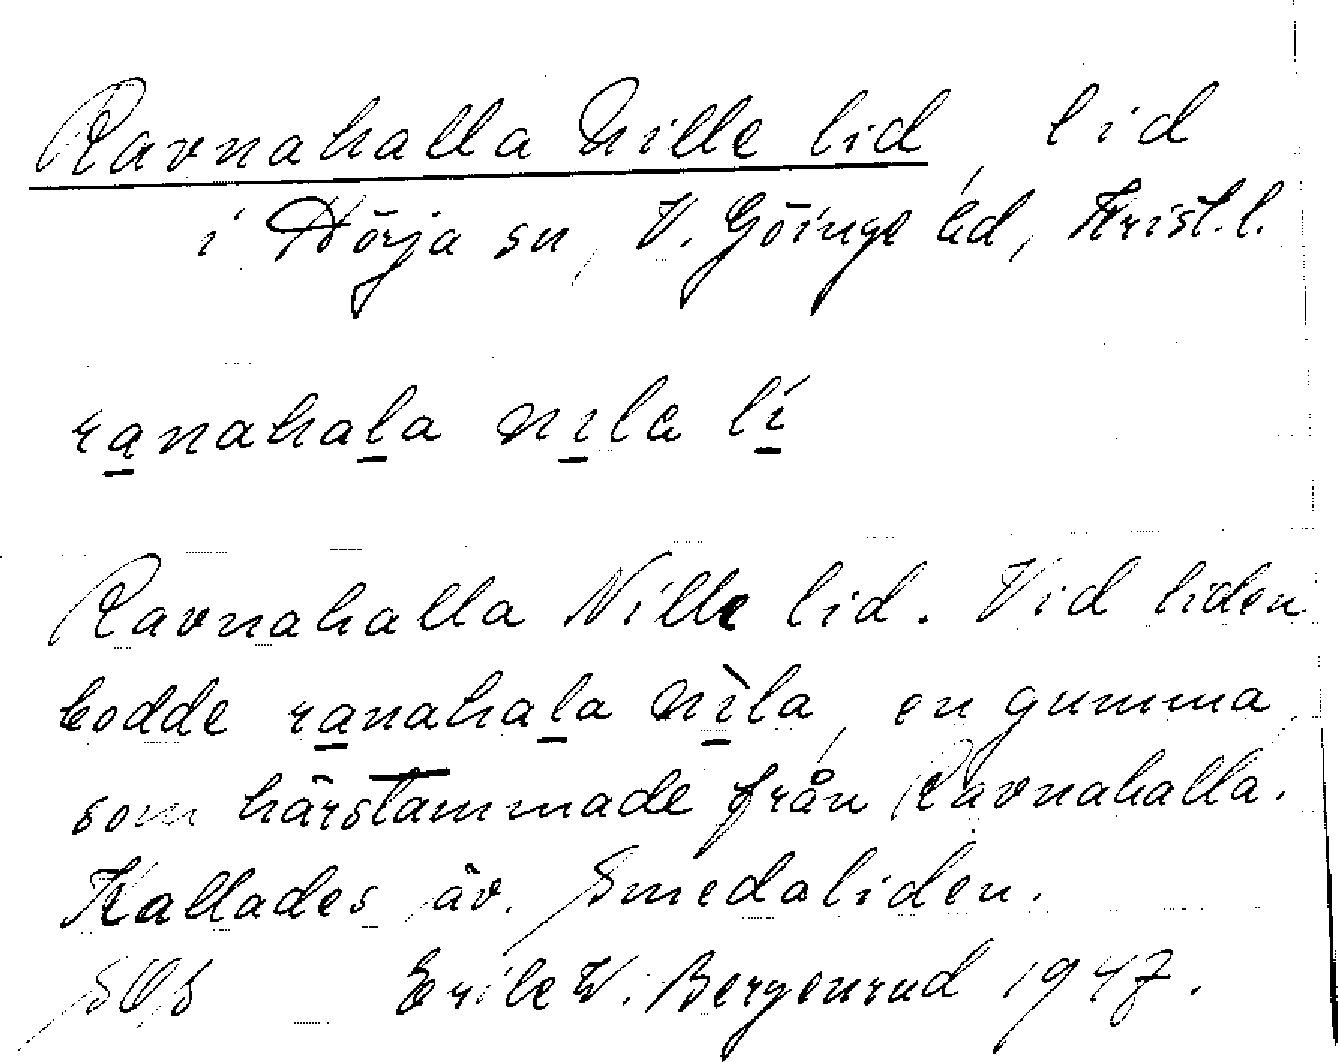 Ravnahalla Nille lid, lid
i Hörja sn, V. Göinge hd, Krist. l.
ranahala nila lí
Ravnahalla Nille lid. Vid liden
bodde ranahala nìla, en gumma
som härstammade från Ravnahalla.
Kallades äv. Smedaliden.
Erik W. Bergenrud 1947.